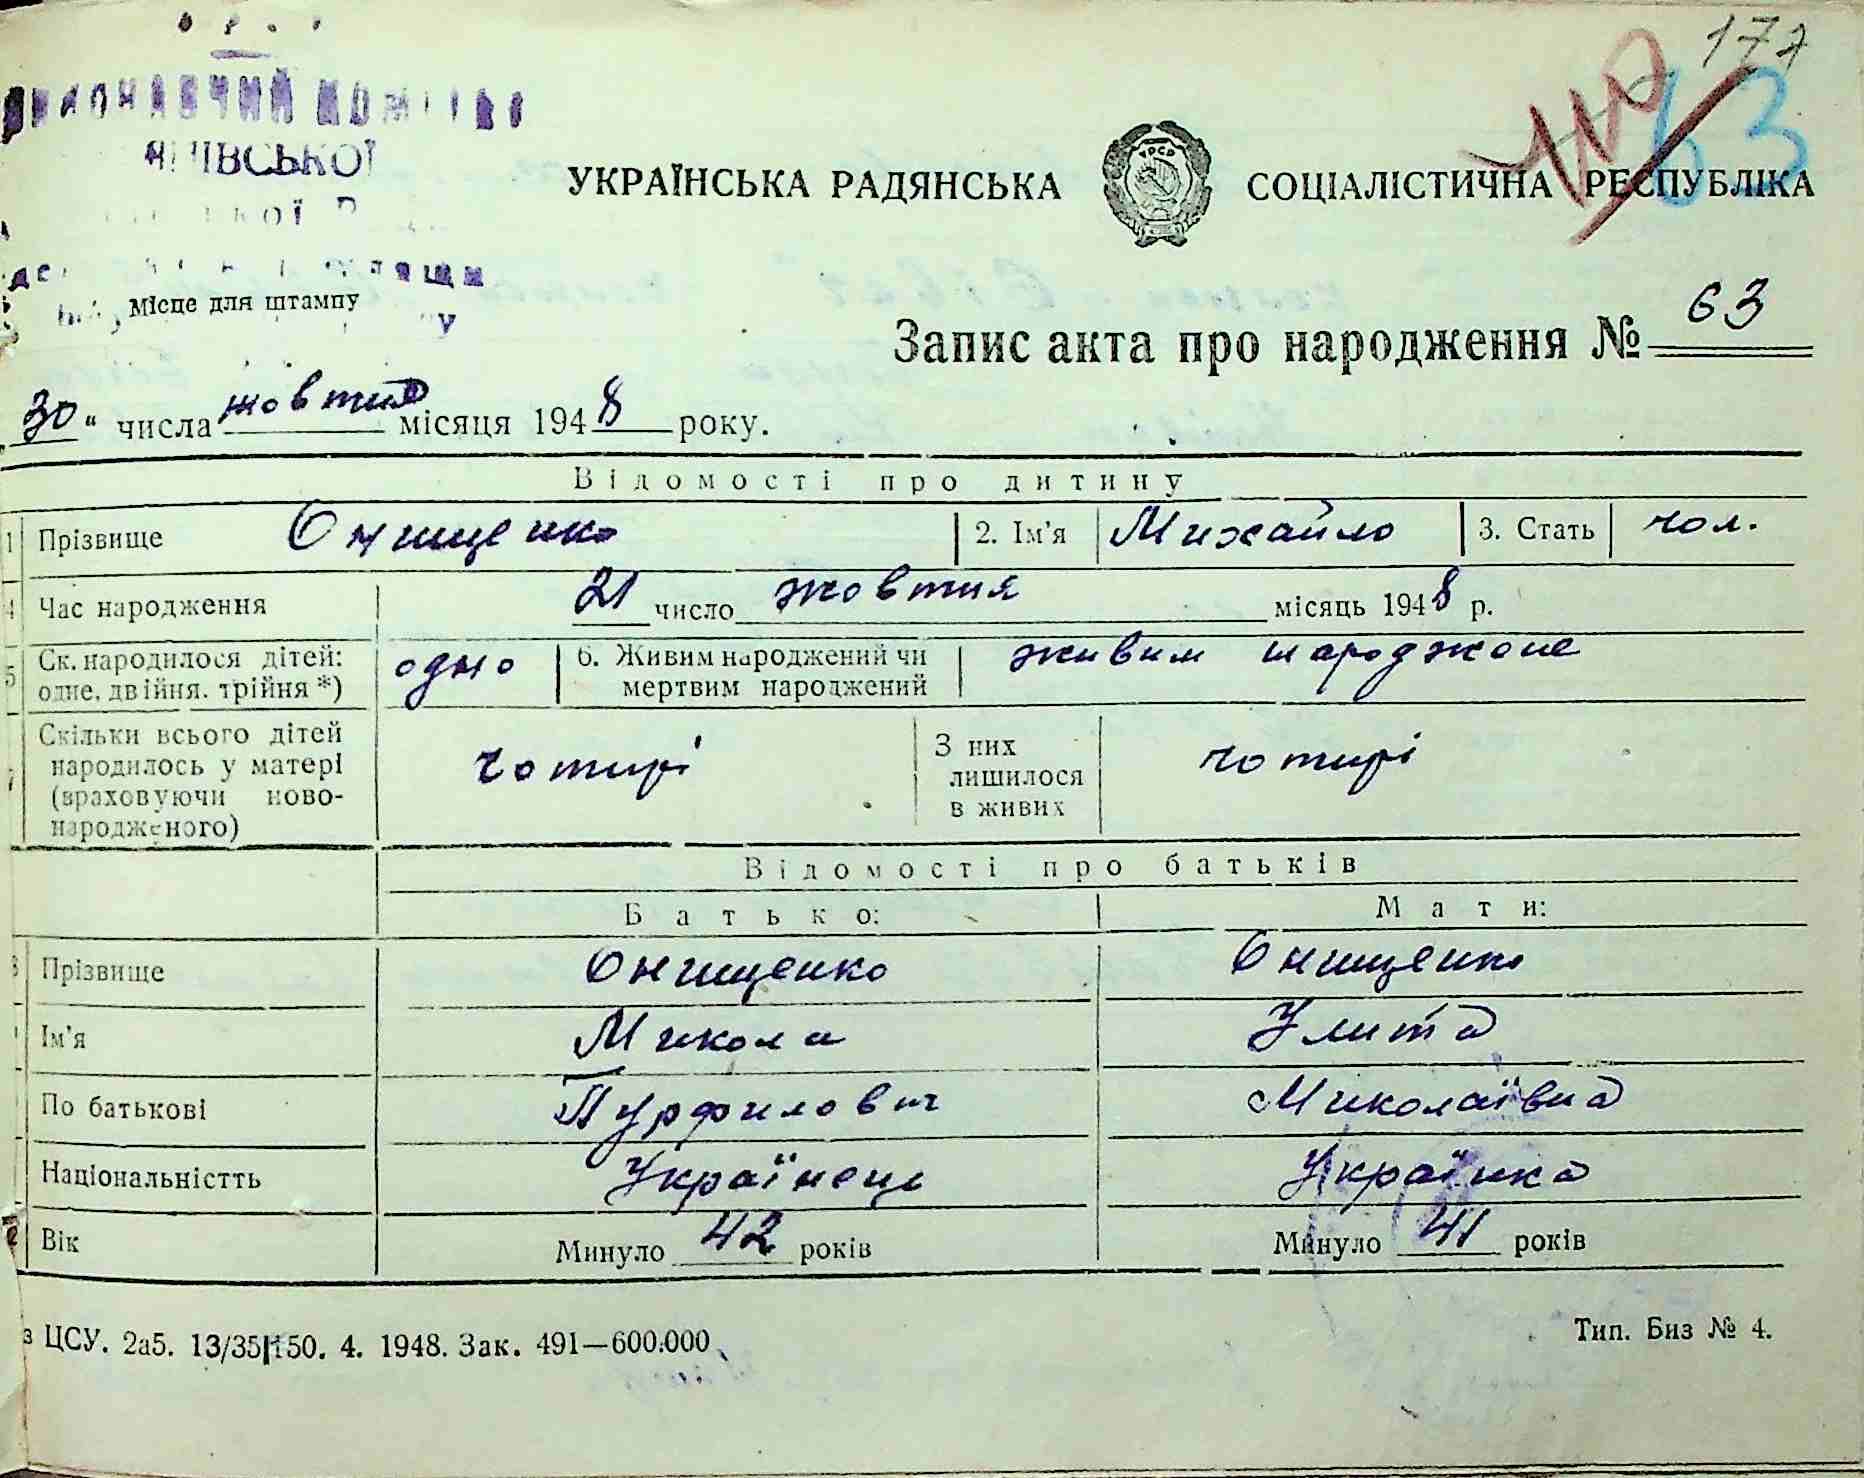 177
63
УКРАЇНСЬКА РАДЯНСЬКА СОЦІАЛІСТИЧНА РЕСПУБЛІКА
Місце для штампу
Запис акта про народження № 63
30" числа жовтня місяця 1948 року.
Відомості про дитину
1 Прізвище Онищенко 2. Ім'я Михайло 3. Стать чол.
4 Час народження 21 число жовтня місяць 1948 р.
5 Ск. народилося дітей: одне, двійня, трійня *) одно 6. Живим народжений чи мертвим народжений живим народжоне
7 Скільки всього дітей народилось у матері (враховуючи новонародженого) чотирі З них лишилося в живих чотирі
Відомості про батьків
Батько: Мати:
8 Прізвище Онищенко Онищенко
Ім'я Микола Улита
По батькові Пурфилович Миколаївна
Національністть Українець Українка
Вік Минуло 42 років Минуло 41 років
з ЦСУ. 2а5. 13/35|150. 4. 1948. Зак. 491—600.000 Тип. Биз № 4.